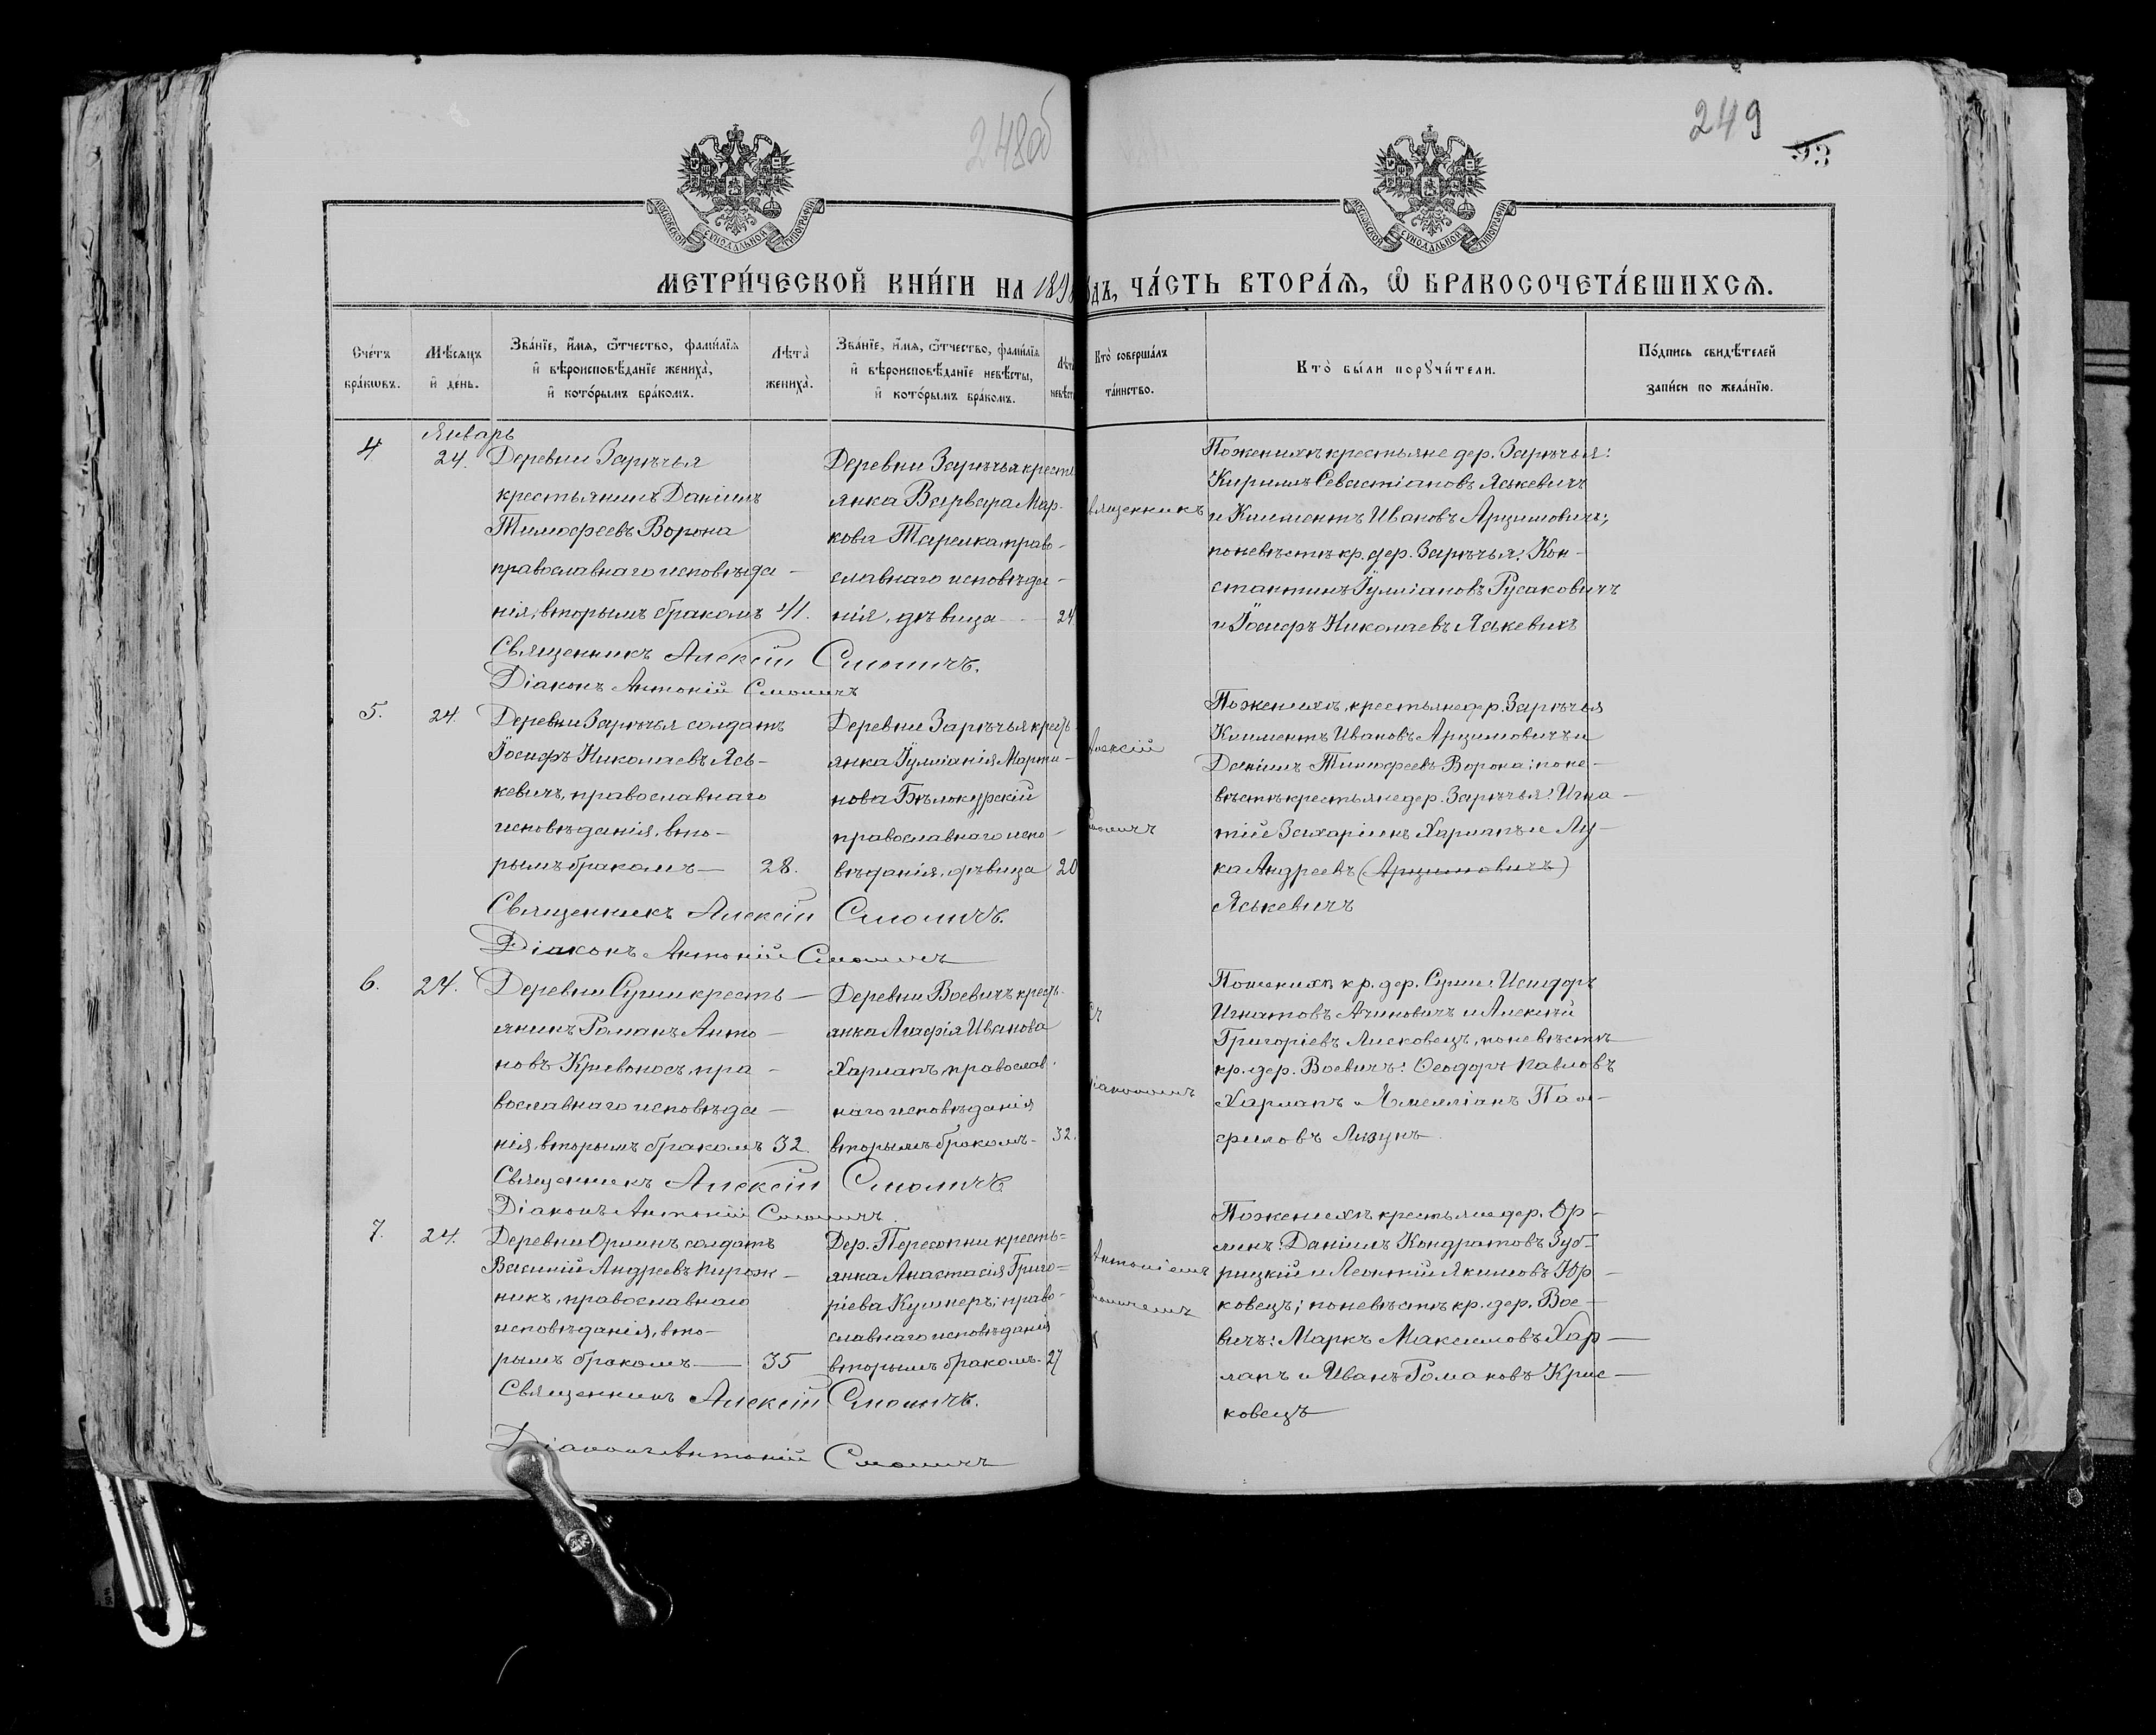 248об
249
93
МОСКОВСКОЙ СѴНОДАЛЬНОЙ ТИПОГРАФІИ
МОСКОВСКОЙ СѴНОДАЛЬНОЙ ТИПОГРАФІИ
МЕТРИ́ЧЕСКОЙ КНИ́ГИ НА 189 ДЪ, ЧА́СТЬ ВТОРА́Ѧ, Ѽ БРАКОСОЧЕТА́ВШИХСѦ.
Сче́тъ бра́кѡвъ.
Мѣ́сѧцъ и҆ де́нь.
Зва́нїе, и҆́мѧ, ѻ҆́тчество, фами́лїѧ и҆ вѣроисповѣ́данїе жениха̀, и҆ кото́рымъ бра́комъ.
Лѣта̀ жениха̀.
Зва́нїе, и҆́мѧ, ѻ҆́тчество, фами́лїѧ и҆ вѣроисповѣ́данїе невѣ́сты, и҆ кото́рымъ бра́комъ.
Лѣта̀ невѣст
Кто̀ соверша́лъ та́инство.
Кто̀ бы́ли порꙋчи́тели.
По́дпись свидѣ́телей за́писи по жела́нїю.
4
Январь
24.
Деревни Зарѣчья
крестьянинъ Даніилъ
Тимоѳеевъ Ворона
православнаго исповѣда-
нія, вторымъ бракомъ 41.
Деревни Зарѣчья кресть
янка Варвара Мар-
кова Тарелка, право-
славнаго исповѣда-
нія, дѣвица 24
вященникъ
По женихѣ крестьяне дер. Зарѣчья:
Кириллъ Севастіановъ Яськевичъ
и Климентъ Ивановъ Арцимовичъ;
по невѣстѣ кр. дер. Зарѣчья: Кон-
стантинъ Іуліановъ Русаковичъ
и Іосифъ Николаевъ Яськевичъ
Священникъ Алексій Смоличъ.
Діаконъ Антоній Смоличъ
5.
24.
Деревни Зарѣчья солдатъ
Іосифъ Николаевъ Ясь-
кевичъ, православнаго
исповѣданія, вто-
рымъ бракомъ— 28.
Деревни Зарѣчья кресть-
янка Іуліанія Марти-
нова Бѣлокурскій
православнаго испо-
вѣданія, дѣвица 20
Алексій
Смоличъ
По женихѣ, крестьяне дер. Зарѣчья
Климентъ Ивановъ Арцимовичъ и
Даніилъ Тимоѳеевъ Ворона; по не-
вѣстѣ крестьяне дер. Зарѣчья: Игна-
тій Захаріинъ Харлапъ и Лу-
ка Андреевъ (Арцимовичъ)
Яськевичъ
Священникъ Алексій Смоличъ.
Діаконъ Антоній Смоличъ
6.
24.
Деревни Суши кресть-
янинъ Романъ Анто-
новъ Кривоносъ, пра-
вославнаго исповѣда-
нія, вторымъ бракомъ 32
Деревни Воевичъ кресть-
янка Агафія Иванова
Харлапъ, православ-
наго исповѣданія
вторымъ бракомъ- 32.
съ
іакономъ
По женихѣ кр. дер. Суши: Исидоръ
Игнатовъ Ачиновичъ и Алексѣй
Григоріевъ Лисковецъ, по невѣстѣ
кр. дер. Воевичъ: Ѳеодоръ Павловъ
Харлапъ и Емеліанъ Пам-
филовъ Лизунъ
Священникъ Алексій Смоличъ
Діаконъ Антоній Смоличъ.
7.
24.
Деревни Орлинъ солдатъ
Василій Андреевъ Пирож-
никъ, православнаго
исповѣданія, вто-
рымъ бракомъ— 35
Дер. Пересопни кресть-
янка Анастасія Григо-
ріева Кушнеръ; право-
славнаго исповѣданія
вторымъ бракомъ- 27
Антоніемъ
моличемъ
По женихѣ крестьяне дер. Ор-
линъ: Даніилъ Кондратовъ Зуб-
рицкій и Леонтій Якимовъ Юр-
ковецъ; по невѣстѣ кр. дер. Вое-
вичъ: Маркъ Максимовъ Хар-
лапъ и Иванъ Романовъ Крис-
ковецъ
Священникъ Алексій Смоличъ.
Діаконъ Антоній Смоличъ